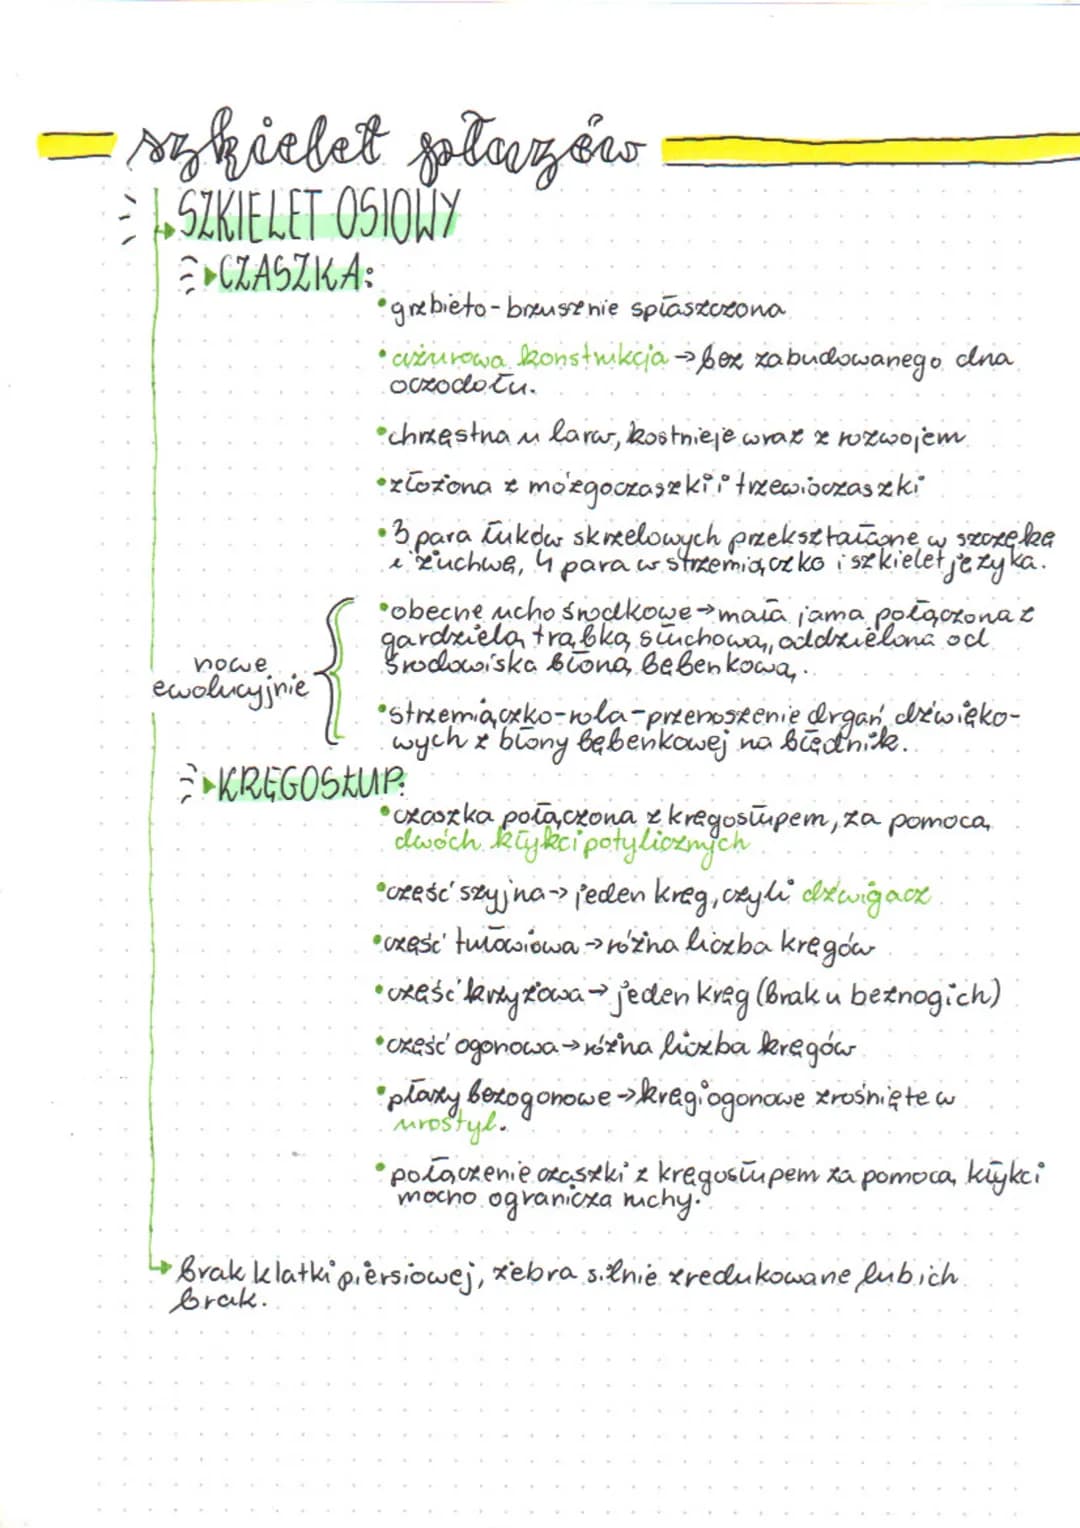 szkielet płazów
SZKIELET OSIOWY
CZASZKA:
•grzbieto-brzusznie spłaszczona
•ażurowa konstrukcja → bez zabudowanego dna
oczodołu.
•chrzęstna u larw, kostnieje wraz z rozwojem
•złożona z mózgoczaszki i trzewioczaszki
•3 para łuków skrzelowych przekształcone w szczękę
i żuchwę, 4 para w strzemiączko i szkielet języka.
•obecne ucho środkowe → mała jama połączona z
gardzielą trąbką słuchową, oddzielona od
środowiska błoną bębenkową.
nowe
ewolucyjnie
•strzemiączko-rola-przenoszenie drgań dźwięko-
wych z błony bębenkowej na błędnik.
KRĘGOSŁUP:
•czaszka połączona z kręgosłupem, za pomocą
dwóch kłykci potylicznych
•część szyjna → jeden kręg, czyli dźwigacz
•część tułowiowa → różna liczba kręgów
•część krzyżowa → jeden kręg (brak u beznogich)
•część ogonowa → różna liczba kręgów
•płazy bezogonowe → kręgi ogonowe zrośnięte w
urostyl.
•połączenie czaszki z kręgosłupem za pomocą kłykci
mocno ogranicza ruchy.
brak klatki piersiowej, żebra silnie zredukowane lub ich
brak.